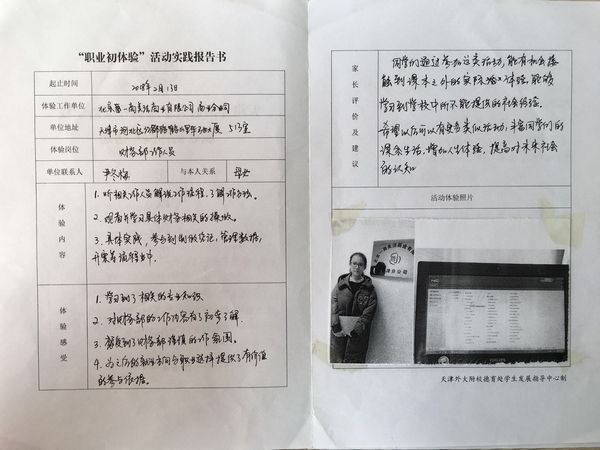 “职业初体验”活动实践报告书
起止时间
2018年2月13日
体验工作单位
北京第一商务
有限公司
单位地址
天津市河北区
513室
体验岗位
财务部工作人员
单位联系人
尹冬梅
与本人关系
母女
体验内容
1. 听相关工作人员解说工作流程,了解工作方法。
2. 观看并学习具体财务相关的操作。
3. 具体实践,参与到制做凭证,管理数据,
开票等流程当中。
体验感受
1. 学习到了相关的专业知识
2. 对财务部的工作内容有了初步了解.
3. 感受到了财务部谨慎的工作氛围。
4. 为之后的就业方向与职业选择提供了有价值
的参与依据.
家长评价及建议
同学们通过参加这类活动,能有机会接
触到课本之外的实际体验,能够
学习到学校中所不能提供的社会经验.
希望以后可以有更多类似活动,丰富同学们的
课余生活,增加人生体验,提高对未来社会
的认知
活动体验照片
天津外大附校德育处学生发展指导中心制